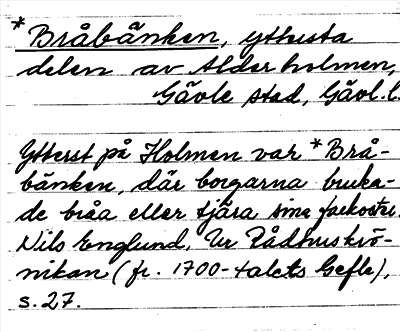 *Bråbänken, yttersta
delen av Alderholmen,
Gävle stad, Gävl.l.
Ytterst på Holmen var *Brå-
bänken, där borgarna bruka-
de bråa eller tjära sina farkoster.
Nils Englund, Ur Rådhuskrö-
nikan (fr. 1700-talets Gefle),
s. 27.